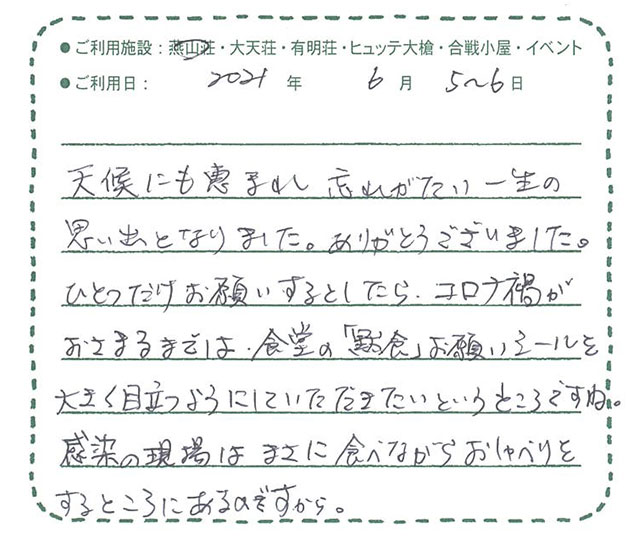 ●ご利用施設：燕山荘・大天荘・有明荘・ヒュッテ大槍・合戦小屋・イベント
●ご利用日： 2021 年 6 月 5〜6 日
天候にも恵まれ 忘れがたい一生の
思い出となりました。ありがとうございました。
ひとつだけお願いするとしたら、コロナ禍が
おさまるまでは、食堂の「黙食」お願いシールを
大きく目立つようにしていただきたいというところですね。
感染の現場はまさに食べながらおしゃべりを
するところにあるのですから。